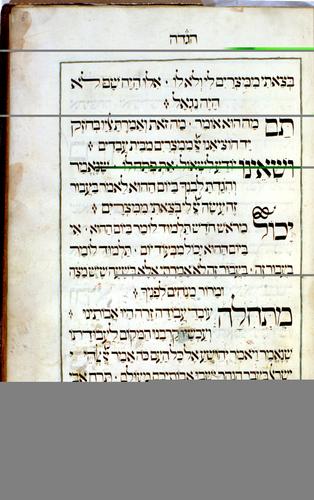 הגדה
בצאתי ממצרים לי ולא לו · אלו היה שם לא
היה נגאל
תם מה הוא אומר · מה זאת ואמרת אליו בחוזק
יד הוציאנו יי ממצרים מבית עבדים
ושאינו יודע לשאול את פתח לו · שנאמר
והגדת לבנך ביום ההוא לאמר בעבור
זה עשה יי לי בצאתי ממצרים
יכול מראש חדש תלמוד לומר ביום ההוא · אי
ביום ההוא יכול מבעוד יום · תלמוד לומר
בעבור זה · בעבור זה לא אמרתי אלא בשעה שיש מצה
ומרור מונחים לפניך
מתחלה עובדי עבודה זרה היו אבותינו
ועכשיו קרבנו המקום לעבודתו
שנאמר ויאמר יהושע אל כל העם כה אמר יי אלהי
ישראל בעבר הנהר ישבו אבותיכם מעולם · תרח אבי